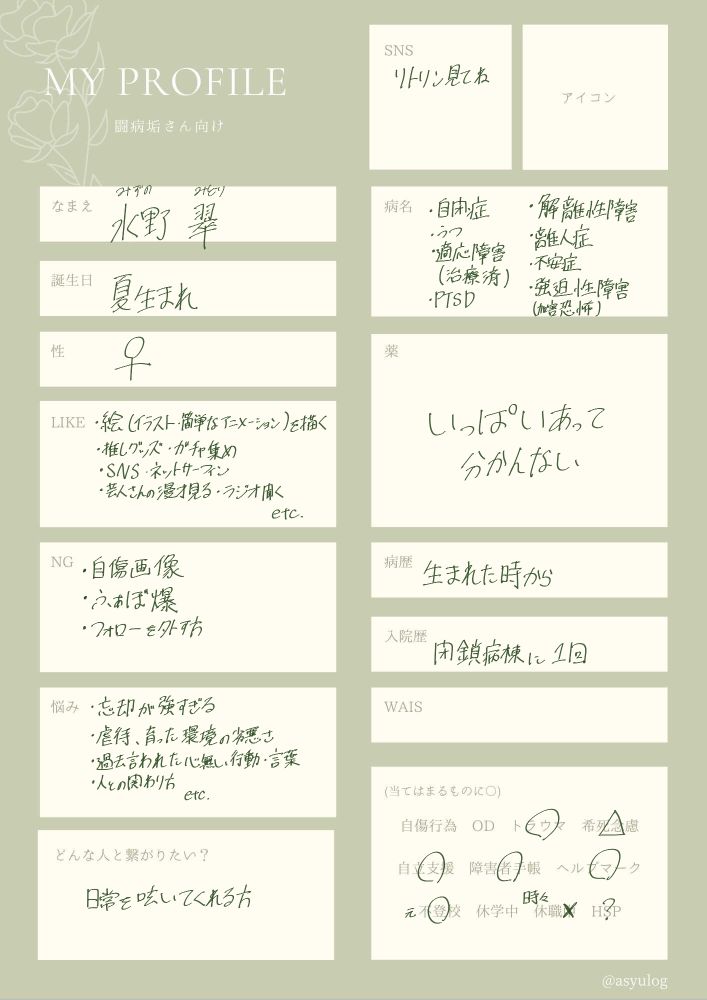 MY PROFILE
闘病垢さん向け
SNS
リトリン見てね
アイコン
なまえ
みずの みどり
水野 翠
誕生日
夏生まれ
性
♀
LIKE
・絵(イラスト・簡単なアニメーション)を描く
・推しグッズ・ガチャ集め
・SNS・ネットサーフィン
・芸人さんの漫才見る・ラジオ聞く
etc.
NG
・自傷画像
・ふぁぼ爆
・フォローを外す方
悩み
・忘却が強すぎる
・虐待、育った環境の劣悪さ
・過去言われた心無い行動・言葉
・人との関わり方
etc.
どんな人と繋がりたい？
日常を呟いてくれる方
病名
・自閉症
・うつ
・適応障害
(治療済)
・PTSD
・解離性障害
・離人症
・不安症
・強迫性障害
(加害恐怖)
薬
いっぱいあって
分かんない
病歴
生まれた時から
入院歴
閉鎖病棟に1回
WAIS
(当てはまるものに○)
自傷行為 OD トラウマ 希死念慮
自立支援 障害者手帳 ヘルプマーク
時々
元不登校 休学中 休職 HSP ?
@asyulog